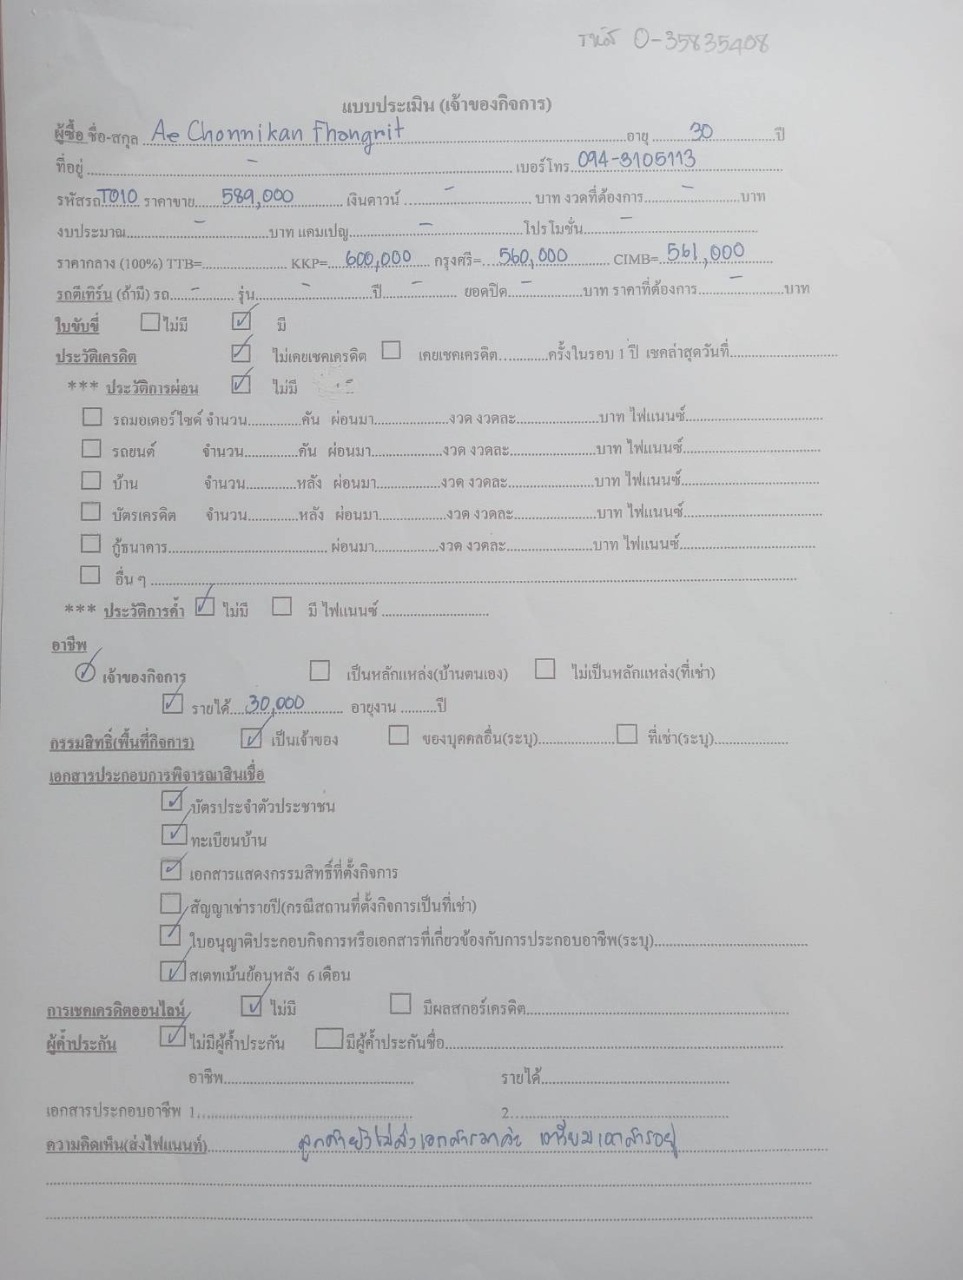 รหัส 0-35835408
แบบประเมิน (เจ้าของกิจการ)
ผู้ซื้อ ชื่อ-สกุล Ae Chonnikan Fhongnit อายุ 30 ปี
ที่อยู่ - เบอร์โทร 094-3105113
รหัสรถ T010 ราคาขาย 589,000 เงินดาวน์ - บาท งวดที่ต้องการ - บาท
งบประมาณ - บาท แคมเปญ - โปรโมชั่น -
ราคากลาง (100%) TTB= KKP= 600,000 กรุงศรี= 560,000 CIMB= 561,000
รถตีเทิร์น (ถ้ามี) รถ - รุ่น - ปี - ยอดปิด - บาท ราคาที่ต้องการ - บาท
ใบขับขี่ ☐ ไม่มี ☑ มี
ประวัติเครดิต ☑ ไม่เคยเชคเครดิต ☐ เคยเชคเครดิต............ครั้งในรอบ 1 ปี เชคล่าสุดวันที่............
*** ประวัติการผ่อน ☑ ไม่มี
☐ รถมอเตอร์ไซค์ จำนวน............คัน ผ่อนมา............งวด งวดละ............บาท ไฟแนนซ์............
☐ รถยนต์ จำนวน............คัน ผ่อนมา............งวด งวดละ............บาท ไฟแนนซ์............
☐ บ้าน จำนวน............หลัง ผ่อนมา............งวด งวดละ............บาท ไฟแนนซ์............
☐ บัตรเครดิต จำนวน............หลัง ผ่อนมา............งวด งวดละ............บาท ไฟแนนซ์............
☐ กู้ธนาคาร............ผ่อนมา............งวด งวดละ............บาท ไฟแนนซ์............
☐ อื่น ๆ............
*** ประวัติการค้ำ ☑ ไม่มี ☐ มี ไฟแนนซ์............
อาชีพ
เจ้าของกิจการ ☐ เป็นหลักแหล่ง(บ้านตนเอง) ☐ ไม่เป็นหลักแหล่ง(ที่เช่า)
☑ รายได้ 30,000 อายุงาน.........ปี
กรรมสิทธิ์(พื้นที่กิจการ) ☑ เป็นเจ้าของ ☐ ของบุคคลอื่น(ระบุ)............ ☐ ที่เช่า(ระบุ)............
เอกสารประกอบการพิจารณาสินเชื่อ
☑ บัตรประจำตัวประชาชน
☑ ทะเบียนบ้าน
☑ เอกสารแสดงกรรมสิทธิ์ที่ตั้งกิจการ
☐ สัญญาเช่ารายปี(กรณีสถานที่ตั้งกิจการเป็นที่เช่า)
☑ ใบอนุญาติประกอบกิจการหรือเอกสารที่เกี่ยวข้องกับการประกอบอาชีพ(ระบุ)............
☑ สเตทเม้นย้อนหลัง 6 เดือน
การเชคเครดิตออนไลน์ ☑ ไม่มี ☐ มีผลสกอร์เครดิต............
ผู้ค้ำประกัน ☑ ไม่มีผู้ค้ำประกัน ☐ มีผู้ค้ำประกันชื่อ............
อาชีพ............ รายได้............
เอกสารประกอบอาชีพ 1............ 2............
ความคิดเห็น(ส่งไฟแนนท์) ลูกค้ายังไม่ส่งเอกสาร เตรียมเอกสารอยู่